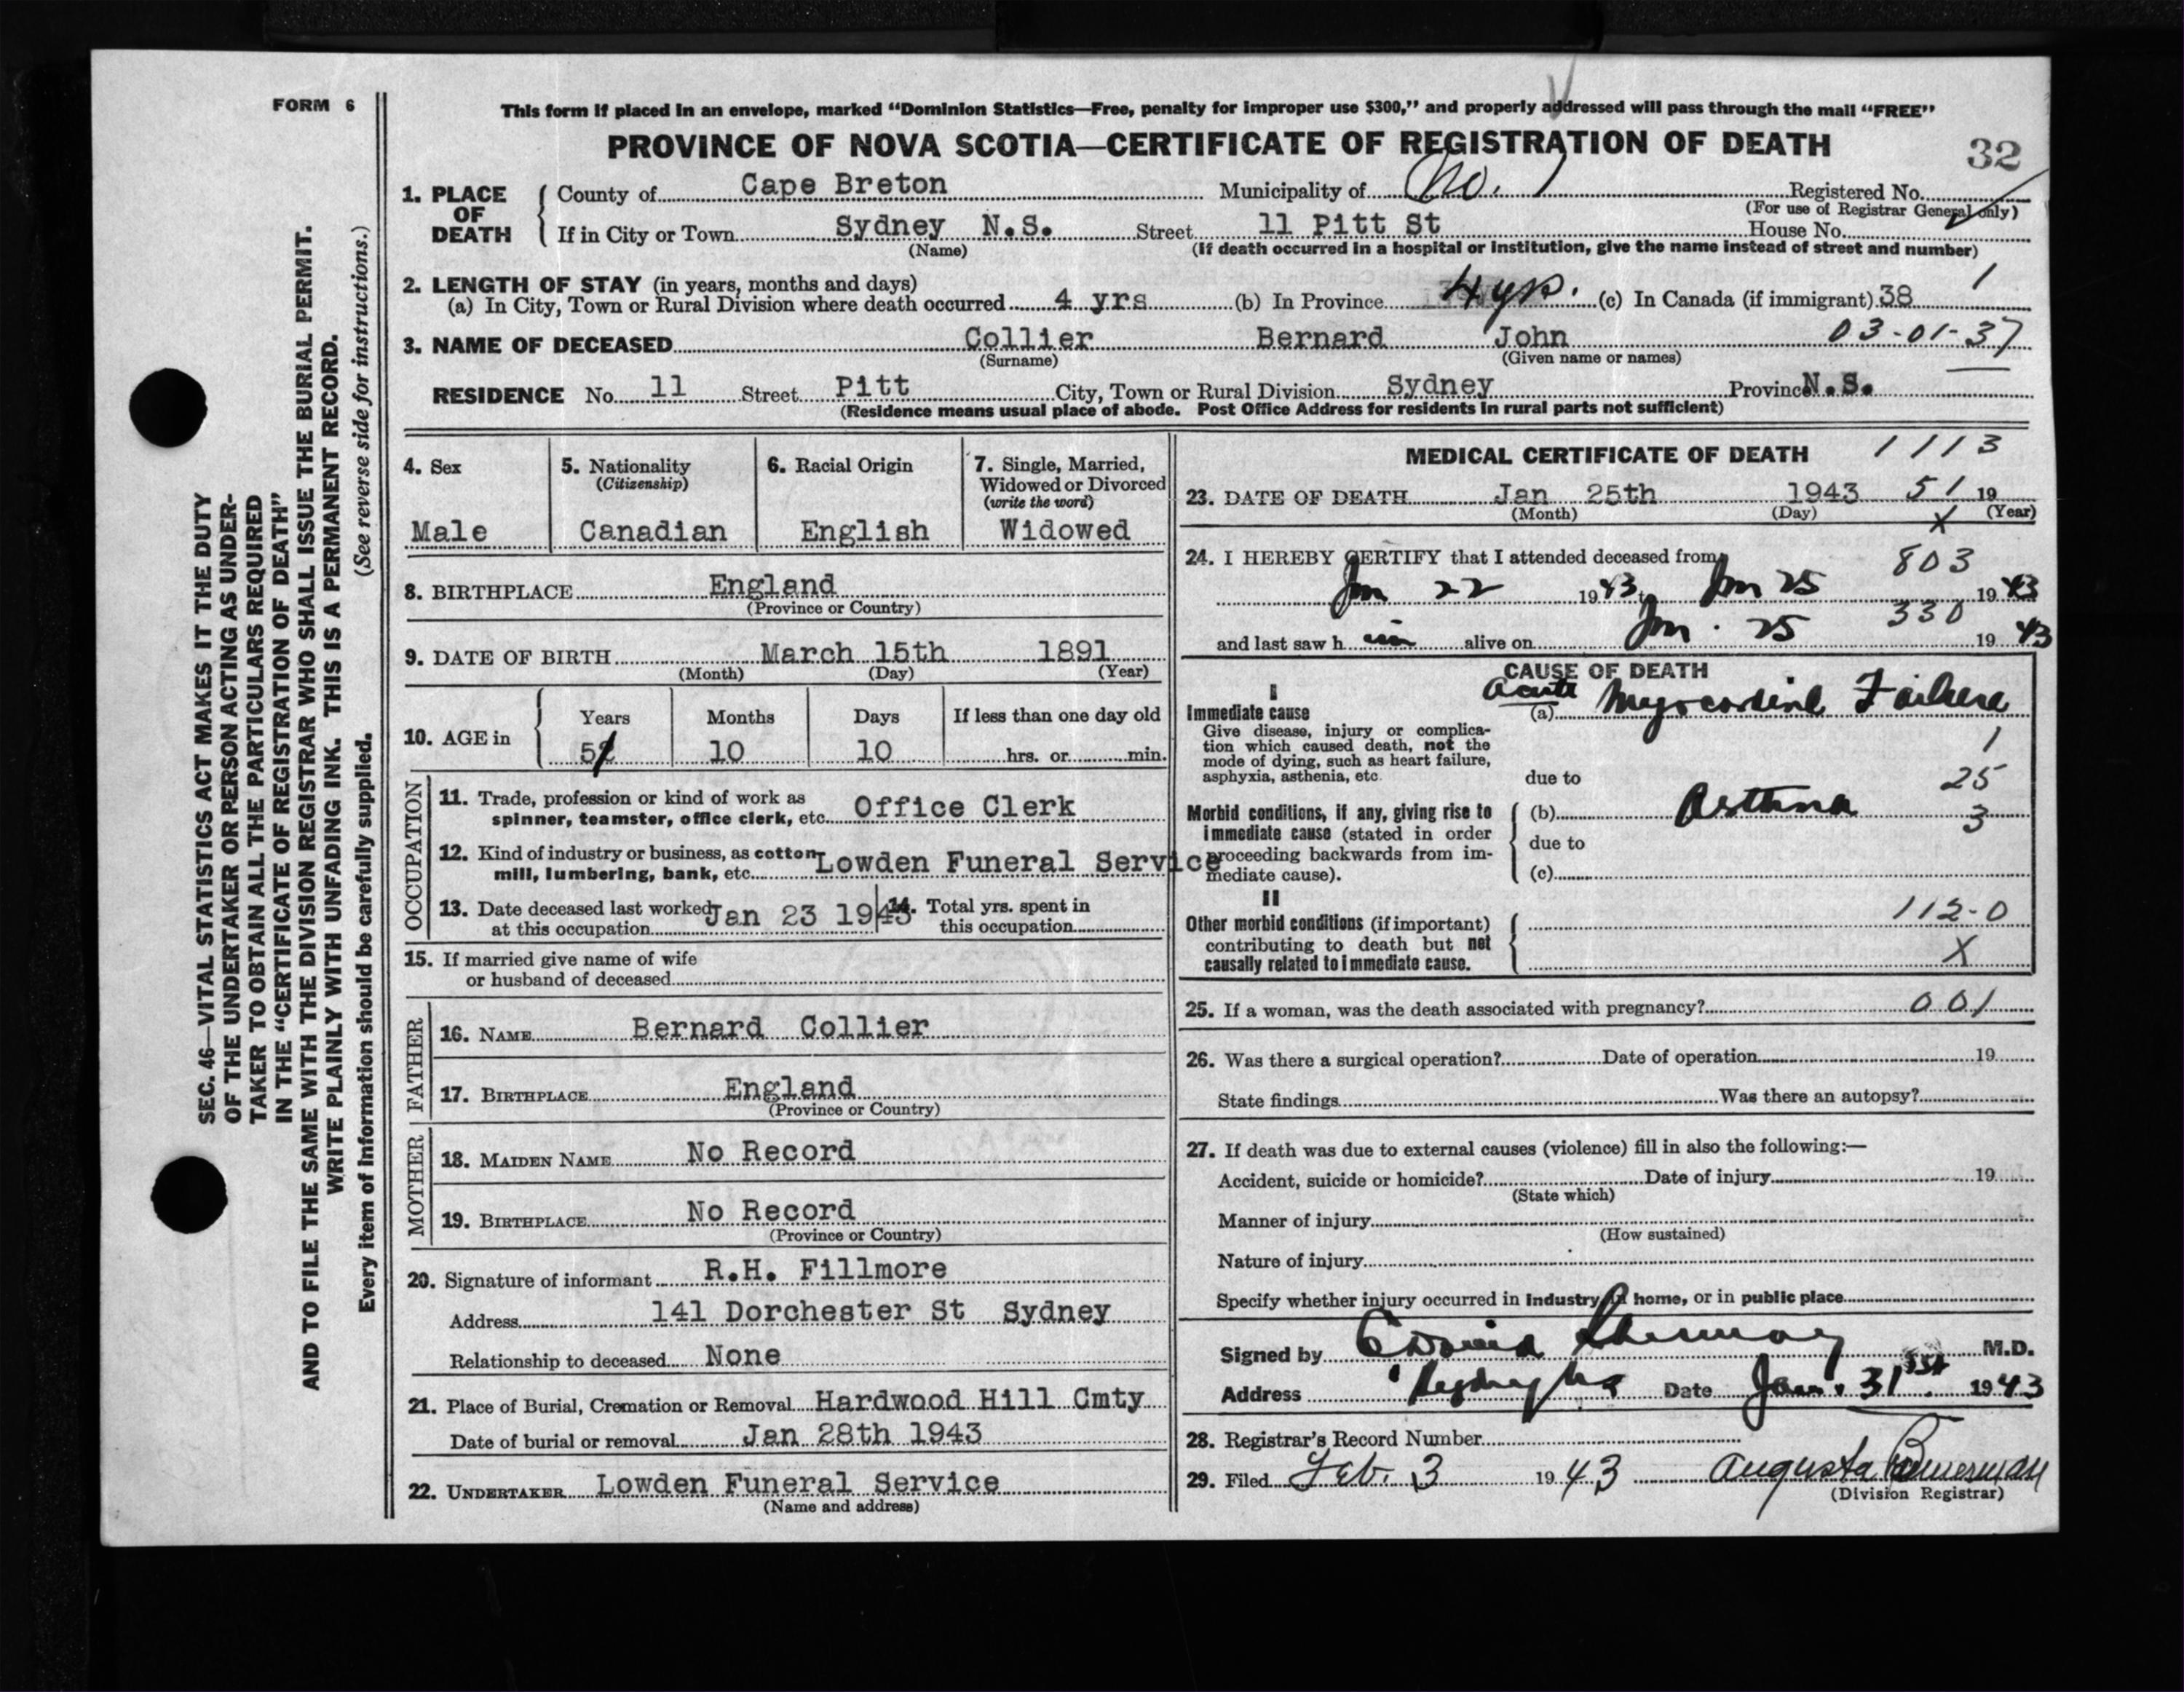 FORM 6
This form if placed in an envelope, marked “Dominion Statistics—Free, penalty for improper use $300,” and properly addressed will pass through the mail “FREE”
PROVINCE OF NOVA SCOTIA—CERTIFICATE OF REGISTRATION OF DEATH
32
1. PLACE OF DEATH { County of Cape Breton Municipality of No. 1 Registered No.
(For use of Registrar General only)
If in City or Town Sydney N.S. Street 11 Pitt St House No.
(Name) (If death occurred in a hospital or institution, give the name instead of street and number)
2. LENGTH OF STAY (in years, months and days) 1
(a) In City, Town or Rural Division where death occurred 4 yrs (b) In Province 4 yrs. (c) In Canada (if immigrant) 38
3. NAME OF DECEASED Collier Bernard John 03-01-37
(Surname) (Given name or names)
RESIDENCE No. 11 Street Pitt City, Town or Rural Division Sydney Province N.S.
(Residence means usual place of abode. Post Office Address for residents in rural parts not sufficient)
4. Sex 5. Nationality (Citizenship) 6. Racial Origin 7. Single, Married, Widowed or Divorced (write the word)
Male Canadian English Widowed
8. BIRTHPLACE England
(Province or Country)
9. DATE OF BIRTH March 15th 1891
(Month) (Day) (Year)
10. AGE in Years Months Days If less than one day old
51 10 10 hrs. or min.
OCCUPATION
11. Trade, profession or kind of work as
spinner, teamster, office clerk, etc. Office Clerk
12. Kind of industry or business, as cotton
mill, lumbering, bank, etc. Lowden Funeral Service
13. Date deceased last worked Jan 23 1943 14. Total yrs. spent in
at this occupation this occupation
15. If married give name of wife
or husband of deceased
FATHER
16. NAME Bernard Collier
17. BIRTHPLACE England
(Province or Country)
MOTHER
18. MAIDEN NAME No Record
19. BIRTHPLACE No Record
(Province or Country)
20. Signature of informant R.H. Fillmore
Address 141 Dorchester St Sydney
Relationship to deceased None
21. Place of Burial, Cremation or Removal Hardwood Hill Cmty
Date of burial or removal Jan 28th 1943
22. UNDERTAKER Lowden Funeral Service
(Name and address)
MEDICAL CERTIFICATE OF DEATH 1113
23. DATE OF DEATH Jan 25th 1943 51 19
(Month) (Day) X (Year)
24. I HEREBY CERTIFY that I attended deceased from 803
Jan 22 1943 to Jan 25 1943
330
and last saw h im alive on Jan. 25 1943
CAUSE OF DEATH
I
Immediate cause (a) Acute Myocardial Failure
Give disease, injury or complica-
tion which caused death, not the 1
mode of dying, such as heart failure,
asphyxia, asthenia, etc. due to 25
Morbid conditions, if any, giving rise to (b) Asthma 3
immediate cause (stated in order due to
proceeding backwards from im-
mediate cause). (c)
II 112-0
Other morbid conditions (if important)
contributing to death but not X
causally related to immediate cause.
25. If a woman, was the death associated with pregnancy? 001
26. Was there a surgical operation? Date of operation 19
State findings Was there an autopsy?
27. If death was due to external causes (violence) fill in also the following:—
Accident, suicide or homicide? Date of injury 19
(State which)
Manner of injury
(How sustained)
Nature of injury
Specify whether injury occurred in industry, in home, or in public place
Signed by M.D.
Address Date Jan. 31st 1943
28. Registrar's Record Number
29. Filed Feb. 3 1943 Augusta Bannerman
(Division Registrar)
SEC. 46—VITAL STATISTICS ACT MAKES IT THE DUTY
OF THE UNDERTAKER OR PERSON ACTING AS UNDER-
TAKER TO OBTAIN ALL THE PARTICULARS REQUIRED
IN THE “CERTIFICATE OF REGISTRATION OF DEATH”
AND TO FILE THE SAME WITH THE DIVISION REGISTRAR WHO SHALL ISSUE THE BURIAL PERMIT.
WRITE PLAINLY WITH UNFADING INK. THIS IS A PERMANENT RECORD.
Every item of information should be carefully supplied. (See reverse side for instructions.)